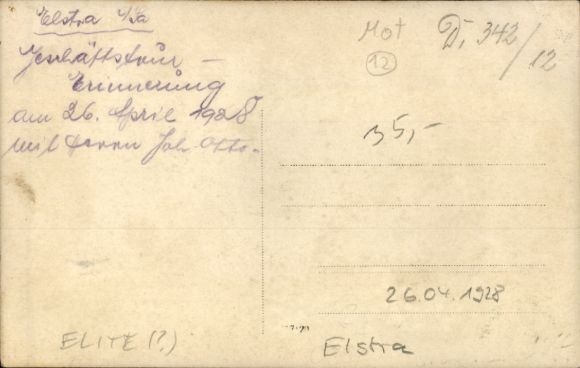 Elstra i/Sa
Geschäftstour -
Erinnerung
am 26. April 1928
mit Herrn Joh. Otto.
Mot
12
D, 342/12
35,-
26.04.1928
Elstra
ELITE (?)